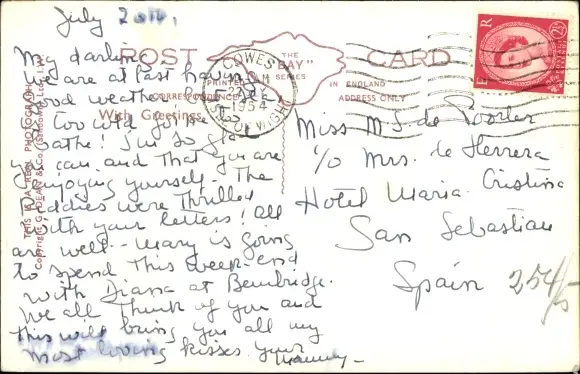 July 20th,
My darling
We are at last having
good weather but the sea
is too cold for me to
bathe! I'm so glad
you can and that you are
enjoying yourself. The
Daddies were thrilled
with your letters! All
are well - Mary is going
to spend this week-end
with Diana at Bembridge.
We all think of you and
this will bring you all my
most loving kisses your
Mummy -
POST CARD
THE
"BAY"
SERIES
PRINTED
IN ENGLAND
CORRESPONDENCE
ADDRESS ONLY
With Greetings
THIS IS A REAL PHOTOGRAPH
COWES
1954
I. OF WIGHT
E R
2½
Miss M S de
c/o Mrs. de Herrera
Hotel Maria Cristina
San Sebastian
Spain
254/5